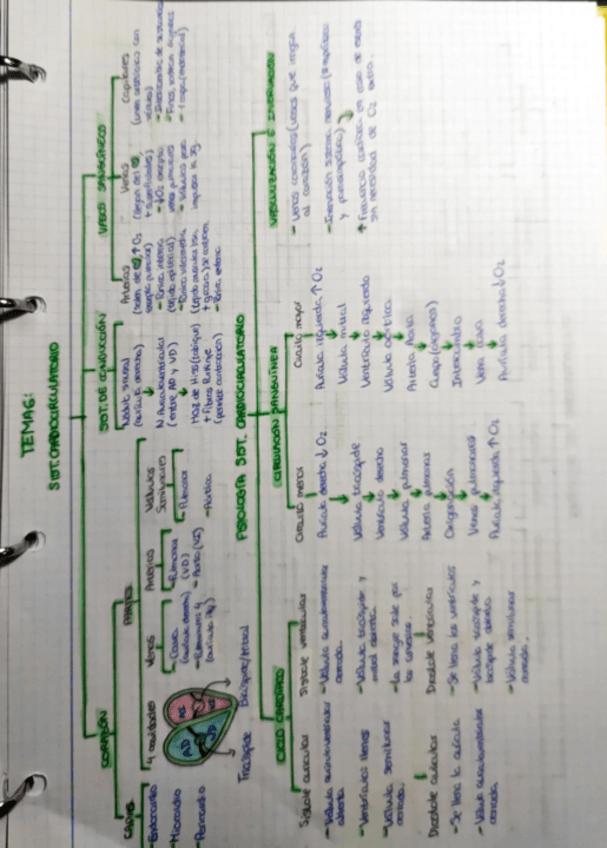 TEMA 6:
SIST. CARDIOCIRCULATORIO
CORAZÓN
CAPAS
- Endocardio
- Miocardio
- Pericardio
PARTES
4 cavidades
AD
VD
Tricúspide
Bicúspide/mitral
Venas
- Cava
(aurícula derecha)
- Pulmonares 4
Arterias
- Pulmonar
(VD)
- Aorta (VI)
Válvulas
Semilunares
- Pulmonar
- Aórtica
SIST. DE CONDUCCIÓN
Nódulo sinusal
(aurícula derecha)
N. Auriculoventricular
(entre AD y VD)
Haz de His (tabique)
+ Fibras Purkinje
VASOS SANGUÍNEOS
Arterias
- Túnica interna
- Túnica externa
Venas
Capilares
FISIOLOGÍA SIST. CARDIOCIRCULATORIO
CICLO CARDÍACO
Sístole auricular
- Válvula auriculoventricular
abierta
- Ventrículos llenos
- Válvula semilunar
cerrada.
Diástole auricular
- Se llena la aurícula
- Válvula auriculoventricular
cerrada.
Sístole ventricular
- Válvula auriculoventricular
cerrada.
- Válvula tricúspide y
mitral abierta.
- La sangre sale por
las arterias.
Diástole ventricular
- Se llena los ventrículos
- Válvula tricúspide y
bicúspide abierta
- Válvula semilunar
cerrada.
CIRCULACIÓN SANGUÍNEA
Circuito menor
Aurícula derecha ↓ O₂
Válvula tricúspide
Ventrículo derecho
Válvula pulmonar
Arteria pulmonar
Oxigenación
Venas pulmonares
Aurícula izquierda ↑ O₂
Circuito mayor
Aurícula izquierda ↑ O₂
Válvula mitral
Ventrículo izquierdo
Válvula aórtica
Arteria Aorta
Cuerpo (órganos)
Intercambio
Vena cava
Aurícula derecha ↓ O₂
VASCULARIZACIÓN E INERVACIÓN
- Venas coronarias (vasos que irrigan
al corazón)
- Inervación sistema nervioso (simpático
y parasimpático)
↑ Frecuencia cardíaca en caso de estrés
sin necesidad de O₂ extra.